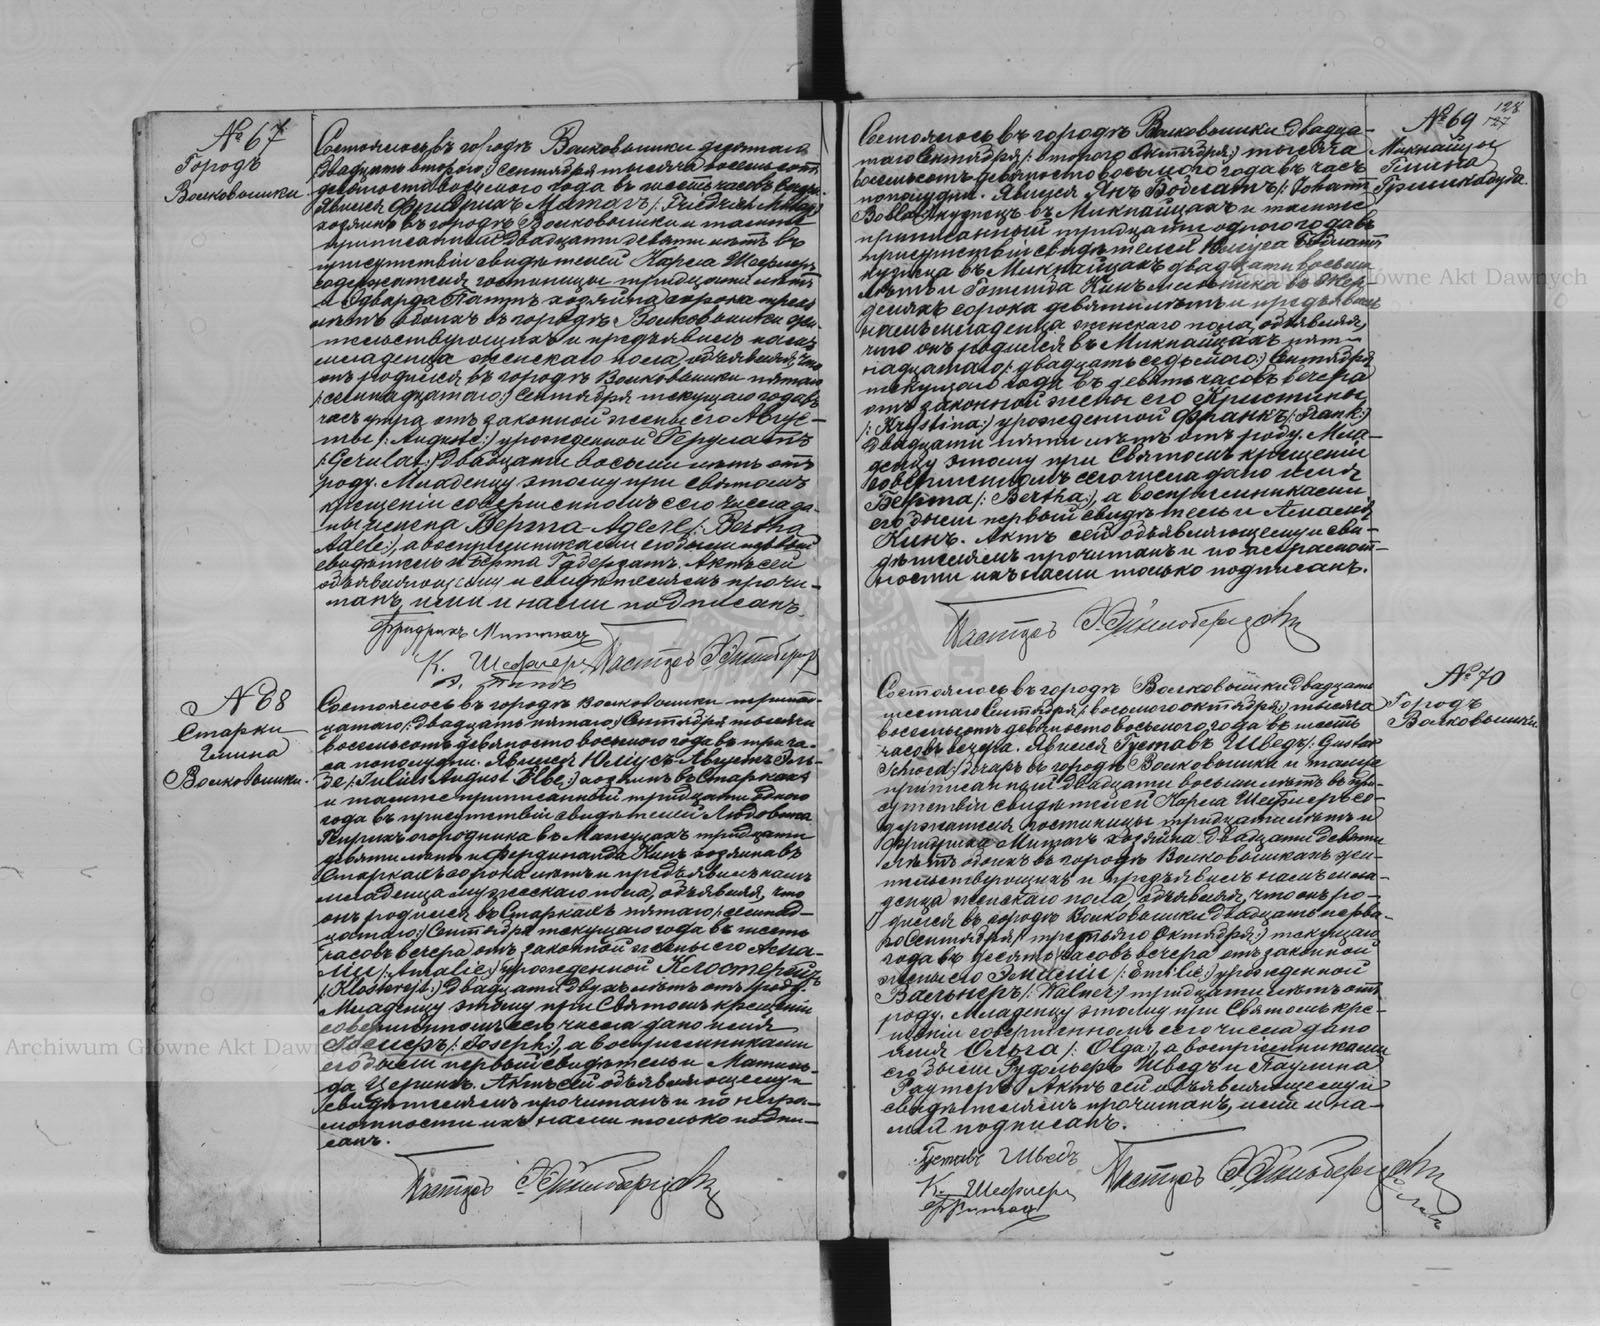 № 67
Городъ
Волковышки
Состоялось въ городѣ Волковышки десятаго
/: двадцать второго :/ Сентября тысяча восемьсотъ
девяносто восьмого года въ шесть часовъ вечера.
Явился Фридрихъ /: Friedrich
хозяинъ въ городѣ Волковышки и тамже
приписанный двадцати девяти лѣтъ въ
присутствіи свидѣтелей Карла Шефлеръ
содержателя гостиницы тридцати лѣтъ
и Эдварда хозяина сорока трехъ
лѣтъ обоихъ въ городѣ Волковышки жи-
тельствующихъ и предъявилъ намъ
младенца женскаго пола, объявляя, что
онъ родился въ городѣ Волковышки пятаго
/: семнадцатаго :/ Сентября текущаго года въ
часъ утра отъ законной жены его Авгус-
ты /: Auguste :/ урожденной Герулатъ
/: Gerulat :/ двадцати восьми лѣтъ отъ
роду. Младенцу этому при Святомъ
крещеніи совершенномъ сего числа да-
ны имена Берта Аделе /: Bertha
Adele :/, а воспріемниками его были первый
свидѣтель и Берта Актъ сей
объявляющему и свидѣтелямъ прочи-
танъ, ими и нами подписанъ.
Фридрихъ
К. Шефлеръ Пасторъ
Э.
№ 68
Старки
Гмина
Волковышки.
Состоялось въ городѣ Волковышки тринад-
цатаго /: двадцать пятаго :/ Сентября тысяча
восемьсотъ девяносто восьмого года въ три ча-
са пополудни. Явился Юлиусъ Августъ Эль-
бе /: Julius August Elbe :/ хозяинъ въ Старкахъ
и тамже приписанный тридцати одного
года въ присутствіи свидѣтелей Людовика
Генрихъ огородника въ тридцати
девяти лѣтъ и Фердинанда Кинъ хозяина въ
Старкахъ сорока лѣтъ и предъявилъ намъ
младенца мужескаго пола, объявляя, что
онъ родился въ Старкахъ пятаго /: семнад-
цатаго :/ Сентября текущаго года въ шесть
часовъ вечера отъ законной жены его Ама-
ліи /: Amalie :/ урожденной Клостерейтъ
/: Klostereit :/ двадцати двухъ лѣтъ отъ роду.
Младенцу этому при Святомъ крещеніи
совершенномъ сего числа дано имя
/: Joseph :/, а воспріемниками
его были первый свидѣтель и Матиль-
да Актъ сей объявляющему и
свидѣтелямъ прочитанъ и по негра-
мотности ихъ нами только подпи-
санъ.
Пасторъ
128
127
№ 69
Микпайцы
Гмина
Состоялось въ городѣ Волковышки двадца-
таго Сентября /: второго Октября :/ тысяча
восемьсотъ девяносто восьмого года въ часъ
пополудни. Явился Янъ Боблатъ /: Johann
Boblat :/ кузнецъ въ Микпайцахъ и тамже
приписанный тридцати одного года въ
присутствіи свидѣтелей Юлиуса Боблатъ
кузнеца въ Микпайцахъ двадцати восьми
лѣтъ и Готлида Кинъ мельника въ
сорока девяти лѣтъ и предъявилъ
намъ младенца женскаго пола, объявляя,
что онъ родился въ Микпайцахъ пят-
надцатаго /: двадцать седьмого :/ Сентября
текущаго года въ девять часовъ вечера
отъ законной жены его Кристины
/: Krystina :/ урожденной Франкъ /: Frank :/
двадцати пяти лѣтъ отъ роду. Мла-
денцу этому при Святомъ крещеніи
совершенномъ сего числа дано имя
Берта /: Bertha :/, а воспріемниками
его были первый свидѣтель и Амалія
Кинъ. Актъ сей объявляющему и сви-
дѣтелямъ прочитанъ и по неграмот-
ности ихъ нами только подписанъ.
Пасторъ
№ 70
Городъ
Волковышки
Состоялось въ городѣ Волковышки двадцать
шестаго Сентября /: восьмого октября :/ тысяча
восемьсотъ девяносто восьмого года въ шесть
часовъ вечера. Явился Густавъ Шведъ /: Gustav
въ городѣ Волковышки и тамже
приписанный двадцати восьми лѣтъ въ при-
сутствіи свидѣтелей Карла Шефлеръ со-
держателя гостиницы тридцати лѣтъ и
Фридриха хозяина двадцати девяти
лѣтъ обоихъ въ городѣ Волковышкахъ жи-
тельствующихъ и предъявилъ намъ мла-
денца женскаго пола, объявляя, что онъ ро-
дился въ городѣ Волковышки двадцать перва-
го Сентября /: третьяго Октября :/ текущаго
года въ десять часовъ вечера отъ законной
жены его Эмиліи /: Emilie :/ урожденной
Вальнеръ /: Walner :/ тридцати лѣтъ отъ
роду. Младенцу этому при Святомъ кре-
щеніи совершенномъ сего числа дано
имя Ольга /: Olga :/, а воспріемниками
его были Рудольфъ Шведъ и Паулина
Раутеръ. Актъ сей объявляющему и
свидѣтелямъ прочитанъ, ими и на-
ми подписанъ.
Густавъ Шведъ
К. Шефлеръ Пасторъ
Archiwum Główne Akt Dawnych
Główne Akt Dawnych